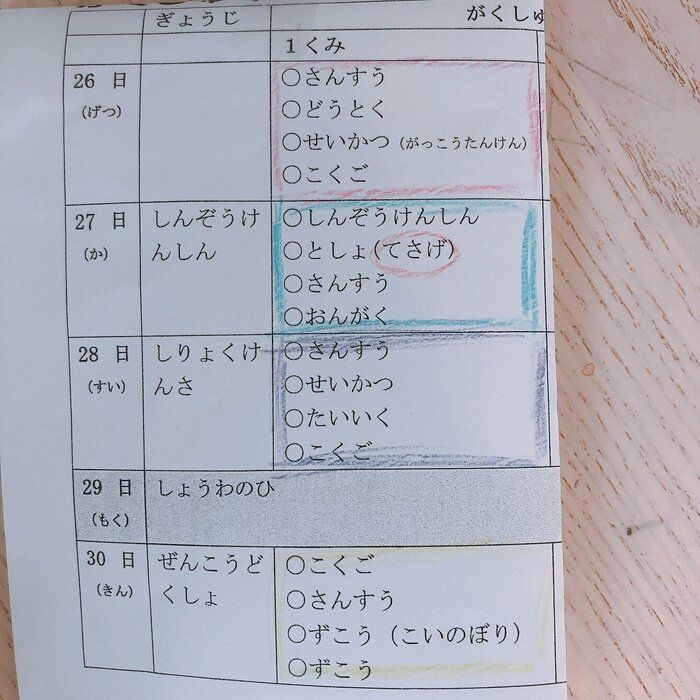 ぎょうじ
がくしゅ
1くみ
26 日
(げつ)
○さんすう
○どうとく
○せいかつ (がっこうたんけん)
○こくご
27 日
(か)
しんぞうけ
んしん
○しんぞうけんしん
○としょ(てさげ)
○さんすう
○おんがく
28 日
(すい)
しりょくけ
んさ
○さんすう
○せいかつ
○たいいく
○こくご
29 日
(もく)
しょうわのひ
30 日
(きん)
ぜんこうど
くしょ
○こくご
○さんすう
○ずこう (こいのぼり)
○ずこう